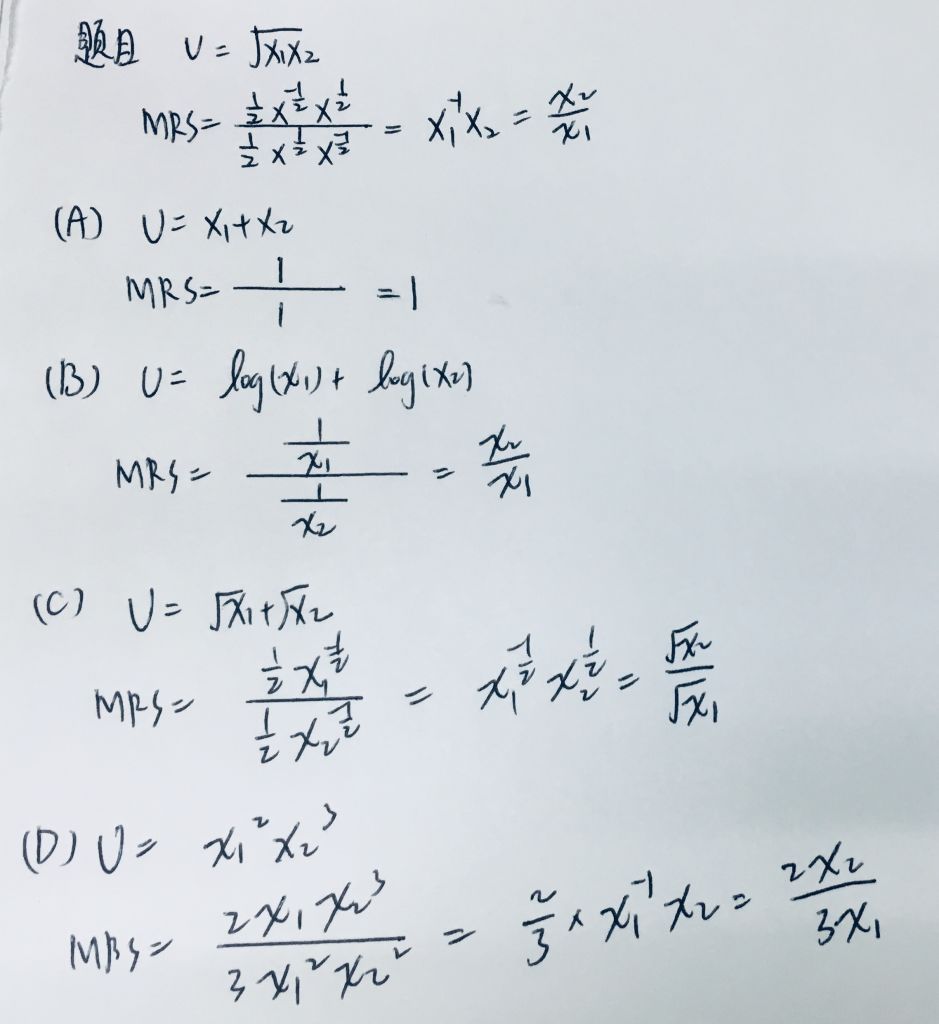 题目 U = √x₁x₂
MRS = (½ x^-½ x^½) / (½ x^½ x^-½) = x₁⁻¹x₂ = x₂/x₁
(A) U = x₁ + x₂
MRS = 1/1 = 1
(B) U = log(x₁) + log(x₂)
MRS = (1/x₁) / (1/x₂) = x₂/x₁
(C) U = √x₁ + √x₂
MRS = (½ x₁^-½) / (½ x₂^-½) = x₁^-½ x₂^½ = √x₂/√x₁
(D) U = x₁²x₂³
MRS = 2x₁x₂³ / 3x₁²x₂² = 2/3 × x₁⁻¹ x₂ = 2x₂/3x₁